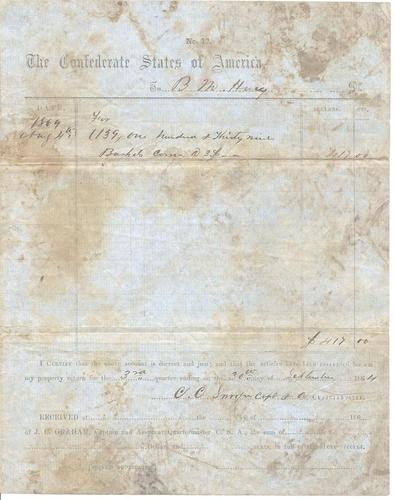 No. 22.
The Confederate States of America,
To B. M. Henry Dr.
DATE. DOLLARS. CTS.
1864 For
Aug 4th (139, one Hundred & Thirty nine
Bushels Corn @ 3$ 417 00
$ 417 00
I CERTIFY that the above account is correct and just; and that the articles have been accounted for on
my property return for the 3rd quarter ending on the 30th day of September 1864
Capt & A Quartermaster.
RECEIVED at the day of 186
of J. C. GRAHAM, Captain and Assistant Quartermaster C. S. A., the sum of
Dollars and cents, in full of the above account.